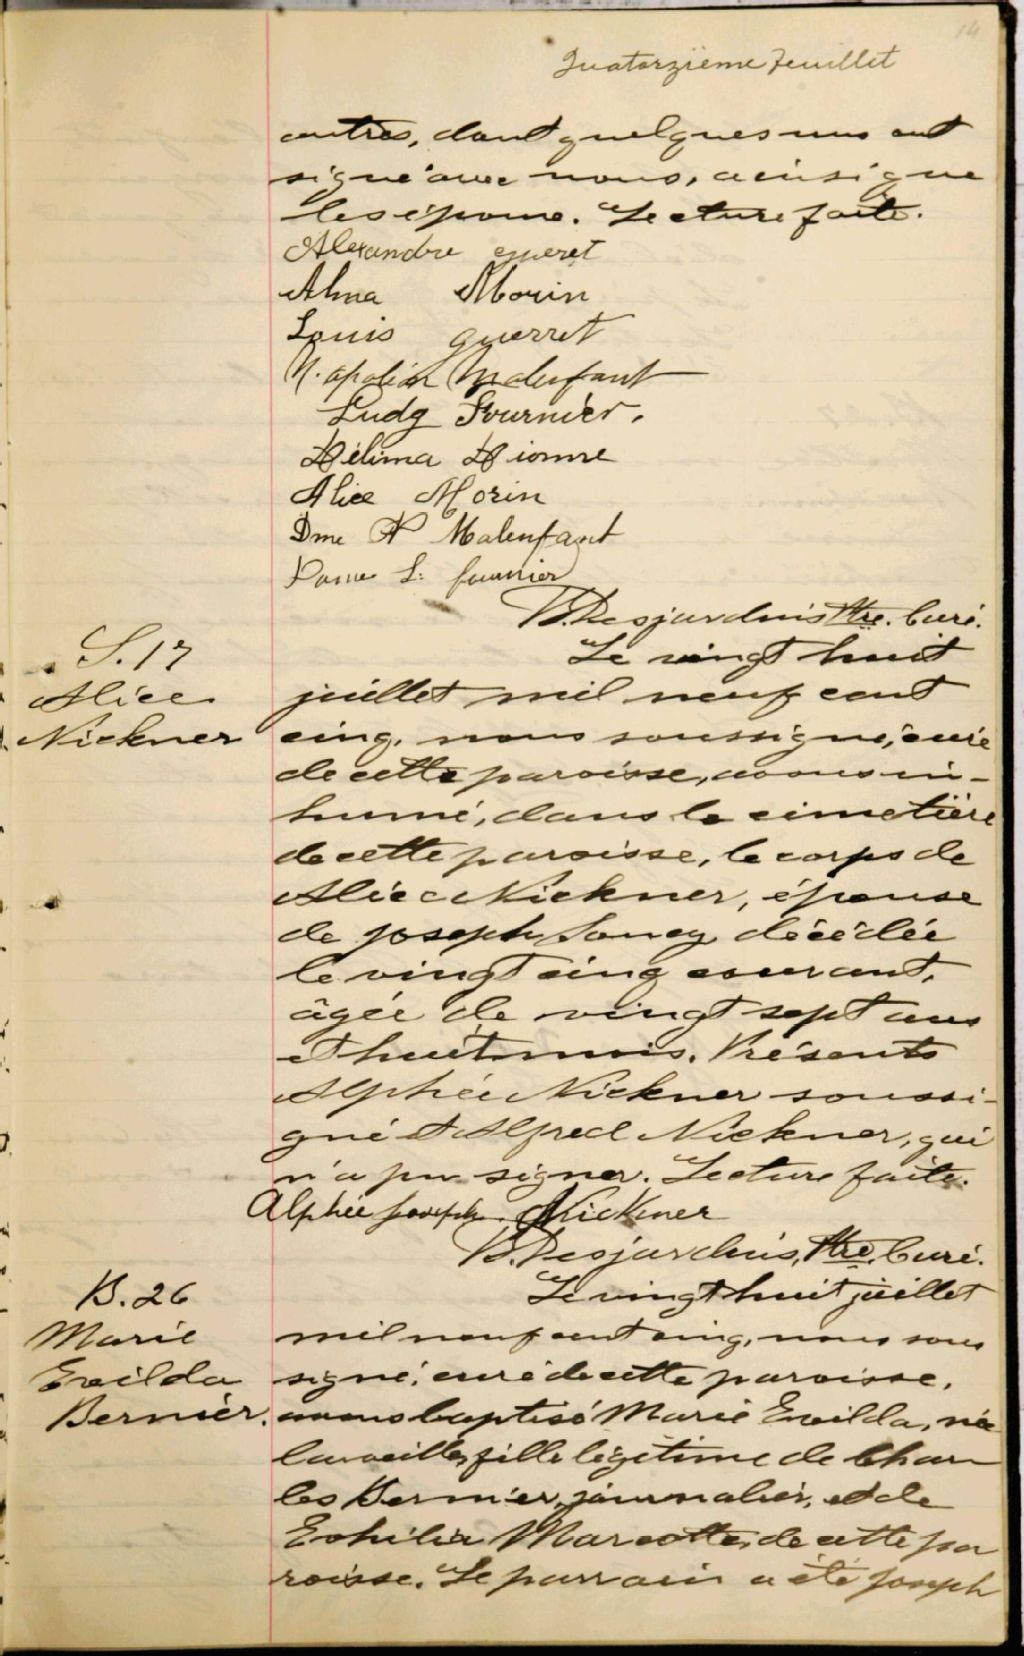 14
Quatorzième feuillet
autres, dont quelques uns ont
signé avec nous, ainsi que
les époux. Lecture faite.
Alexandre queret
Alma Morin
Louis querret
N.apoléon Malenfant
Ludg Fournier.
Délima Dionne
Alice Morin
Dme N Malenfant
Dame L. fournier
B. Desjardins Ptre. Curé.
S. 17
Alice
Nickner
Le vingt huit
juillet mil neuf cent
cinq, nous soussigné, curé
de cette paroisse, avons in-
humé, dans le cimetière
de cette paroisse, le corps de
Alice Nickner, épouse
de Joseph Soucy décédée
le vingt cinq courant,
âgée de vingt sept ans
et huit mois. Présents
Alphée Nickner soussi-
gné et Alfred Nickner, qui
n'a pu signer. Lecture faite.
Alphée Joseph Nickner
B. Desjardins, Ptre. Curé.
B. 26
Marie
Exilda
Bernier.
Le vingt huit juillet
mil neuf cent cinq, nous sous
signé, curé de cette paroisse,
avons baptisé Marie Exilda, née
la veille, fille légitime de Char
les Bernier, journalier, et de
Marcotte, de cette pa
roisse. Le parrain a été Joseph